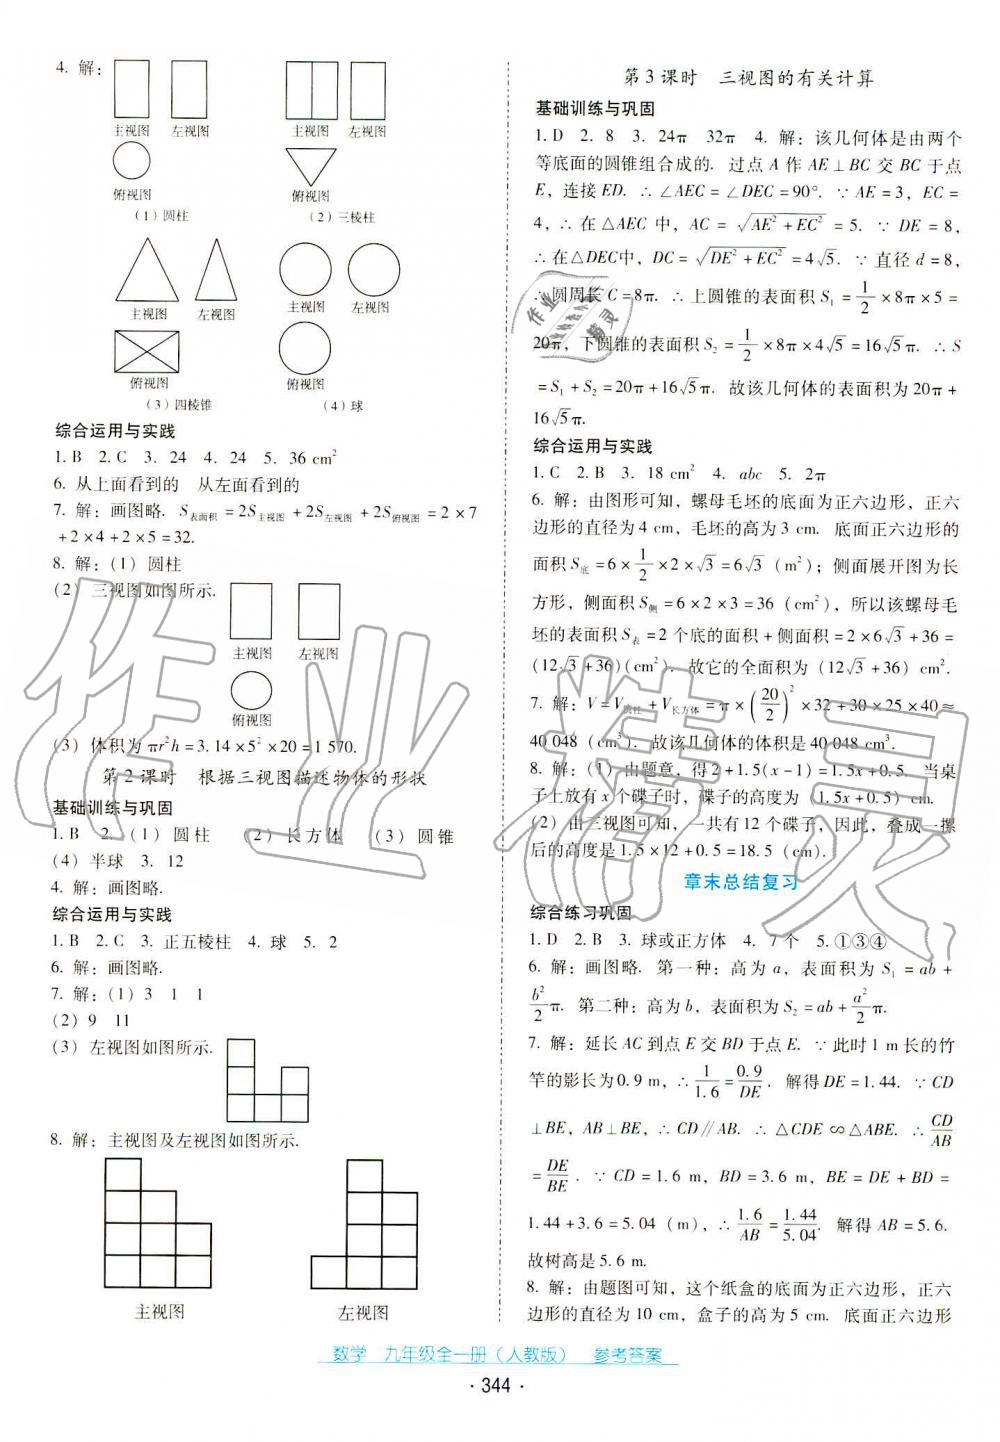 4. 解：
主视图 左视图 主视图 左视图
俯视图 俯视图
（1）圆柱 （2）三棱柱
主视图 左视图 主视图 左视图
俯视图 俯视图
（3）四棱锥 （4）球
综合运用与实践
1. B 2. C 3. 24 4. 24 5. 36 cm²
6. 从上面看到的 从左面看到的
7. 解：画图略. S表面积 = 2S主视图 + 2S左视图 + 2S俯视图 = 2 × 7
+ 2 × 4 + 2 × 5 = 32.
8. 解：（1）圆柱
（2）三视图如图所示.
主视图 左视图
俯视图
（3）体积为 πr²h = 3.14 × 5² × 20 = 1 570.
第 2 课时 根据三视图描述物体的形状
基础训练与巩固
1. B 2.（1）圆柱 （2）长方体 （3）圆锥
（4）半球 3. 12
4. 解：画图略.
综合运用与实践
1. B 2. C 3. 正五棱柱 4. 球 5. 2
6. 解：画图略.
7. 解：（1）3 1 1
（2）9 11
（3）左视图如图所示.
8. 解：主视图及左视图如图所示.
主视图 左视图
第 3 课时 三视图的有关计算
基础训练与巩固
1. D 2. 8 3. 24π 32π 4. 解：该几何体是由两个
等底面的圆锥组合成的. 过点 A 作 AE ⊥ BC 交 BC 于点
E，连接 ED. ∴ ∠AEC = ∠DEC = 90°. ∵ AE = 3，EC =
4，∴ 在 △AEC 中，AC = √(AE² + EC²) = 5. ∵ DE = 8，
∴ 在△DEC中，DC = √(DE² + EC²) = 4√5. ∵ 直径 d = 8，
∴ 圆周长 C = 8π. ∴ 上圆锥的表面积 S₁ = 1/2 × 8π × 5 =
20π，下圆锥的表面积 S₂ = 1/2 × 8π × 4√5 = 16√5π. ∴ S
= S₁ + S₂ = 20π + 16√5π. 故该几何体的表面积为 20π +
16√5π.
综合运用与实践
1. C 2. B 3. 18 cm² 4. abc 5. 2π
6. 解：由图形可知，螺母毛坯的底面为正六边形，正六
边形的直径为 4 cm，毛坯的高为 3 cm. 底面正六边形的
面积 S底 = 6 × 1/2 × 2 × √3 = 6√3 （m²）；侧面展开图为长
方形，侧面积 S侧 = 6 × 2 × 3 = 36（cm²），所以该螺母毛
坯的表面积 S表 = 2 个底的面积 + 侧面积 = 2 × 6√3 + 36 =
（12√3 + 36）（cm²）. 故它的全面积为（12√3 + 36）cm².
7. 解：V = V圆柱 + V长方体 = π × (20/2)² × 32 + 30 × 25 × 40 ≈
40 048（cm³）. 故该几何体的体积是 40 048 cm³.
8. 解：（1）由题意，得 2 + 1.5(x − 1) = 1.5x + 0.5. 当桌
子上放有 x 个碟子时，碟子的高度为（1.5x + 0.5）cm.
（2）由三视图可知，一共有 12 个碟子，因此，叠成一摞
后的高度是 1.5 × 12 + 0.5 = 18.5（cm）.
章末总结复习
综合练习巩固
1. D 2. B 3. 球或正方体 4. 7 个 5. ①③④
6. 解：画图略. 第一种：高为 a，表面积为 S₁ = ab +
b²/2 π. 第二种：高为 b，表面积为 S₂ = ab + a²/2 π.
7. 解：延长 AC 到点 E 交 BD 于点 E. ∵ 此时 1 m 长的竹
竿的影长为 0.9 m，∴ 1/1.6 = 0.9/DE. 解得 DE = 1.44. ∵ CD
⊥ BE，AB ⊥ BE，∴ CD // AB. ∴ △CDE ∽ △ABE. ∴ CD/AB
= DE/BE. ∵ CD = 1.6 m，BD = 3.6 m，BE = DE + BD =
1.44 + 3.6 = 5.04（m），∴ 1.6/AB = 1.44/5.04. 解得 AB = 5.6.
故树高是 5.6 m.
8. 解：由题图可知，这个纸盒的底面为正六边形，正六
边形的直径为 10 cm，盒子的高为 5 cm. 底面正六边形
数学 九年级全一册（人教版） 参考答案
· 344 ·
作业精灵
作业精灵